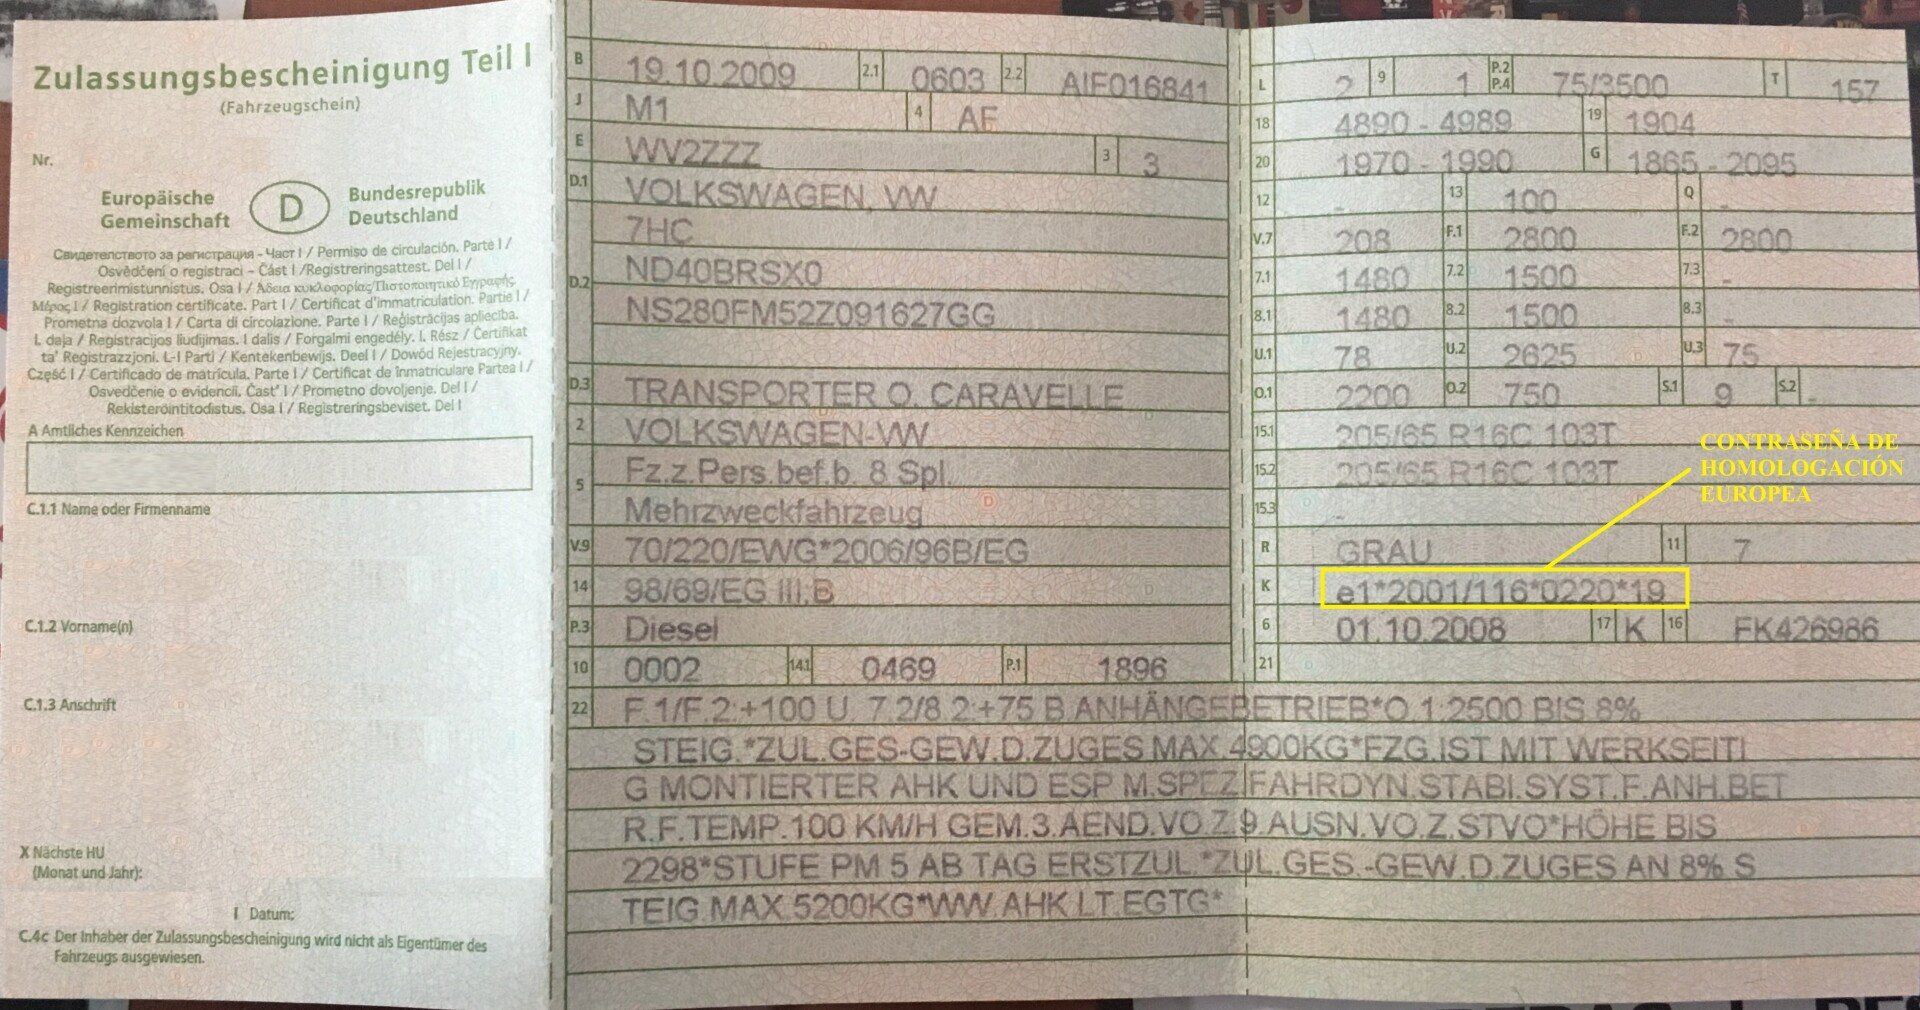 Zulassungsbescheinigung Teil I
(Fahrzeugschein)
Nr.
Europäische Gemeinschaft
D
Bundesrepublik Deutschland
Свидетелството за регистрация - Част I / Permiso de circulación. Parte I /
Osvědčení o registraci – Část I /Registreringsattest. Del I /
Registreerimistunnistus. Osa I / Άδεια κυκλοφορίας/Πιστοποιητικό Εγγραφής
Μέρος I / Registration certificate. Part I / Certificat d'immatriculation. Partie I /
Prometna dozvola I / Carta di circolazione. Parte I / Reģistrācijas apliecība.
I. daļa / Registracijos liudijimas. I dalis / Forgalmi engedély. I. Rész / Ċertifikat
ta' Reġistrazzjoni. L-I Parti / Kentekenbewijs. Deel I / Dowód Rejestracyjny.
Część I / Certificado de matrícula. Parte I / Certificat de înmatriculare Partea I /
Osvedčenie o evidencii. Časť I / Prometno dovoljenje. Del I /
Rekisteröintitodistus. Osa I / Registreringsbeviset. Del I
A Amtliches Kennzeichen
C.1.1 Name oder Firmenname
C.1.2 Vorname(n)
C.1.3 Anschrift
X Nächste HU
(Monat und Jahr):
I Datum:
C.4c Der Inhaber der Zulassungsbescheinigung wird nicht als Eigentümer des
Fahrzeugs ausgewiesen.
B 19.10.2009 2.1 0603 2.2 AIF016841
J M1 4 AF
E WV2ZZZ 3 3
D.1 VOLKSWAGEN, VW
7HC
D.2 ND40BRSX0
NS280FM52Z091627GG
D.3 TRANSPORTER O. CARAVELLE
2 VOLKSWAGEN-VW
5 Fz.z.Pers.bef.b. 8 Spl.
Mehrzweckfahrzeug
V.9 70/220/EWG*2006/96B/EG
14 98/69/EG III;B
P.3 Diesel
10 0002 14.1 0469 P.1 1896
L 2 9 1 P.2 P.4 75/3500 T 157
18 4890 - 4989 19 1904
20 1970 - 1990 G 1865 - 2095
12 - 13 100 Q -
V.7 208 F.1 2800 F.2 2800
7.1 1480 7.2 1500 7.3 -
8.1 1480 8.2 1500 8.3 -
U.1 78 U.2 2625 U.3 75
O.1 2200 O.2 750 S.1 9 S.2 -
15.1 205/65 R16C 103T
15.2 205/65 R16C 103T
15.3 -
CONTRASEÑA DE
HOMOLOGACIÓN
EUROPEA
R GRAU 11 7
K e1*2001/116*0220*19
6 01.10.2008 17 K 16 FK426986
21
22 F.1/F.2:+100 U. 7.2/8.2:+75 B.ANHÄNGEBETRIEB*O.1:2500 BIS 8%
STEIG.*ZUL.GES-GEW.D.ZUGES MAX.4900KG*FZG.IST MIT WERKSEITI
G MONTIERTER AHK UND ESP M.SPEZ.FAHRDYN.STABI.SYST.F.ANH.BET
R.F.TEMP.100 KM/H GEM.3.AEND.VO.Z.9.AUSN.VO.Z.STVO*HÖHE BIS
2298*STUFE PM 5 AB TAG ERSTZUL.*ZUL.GES.-GEW.D.ZUGES AN 8% S
TEIG.MAX.5200KG*WW.AHK LT.EGTG*